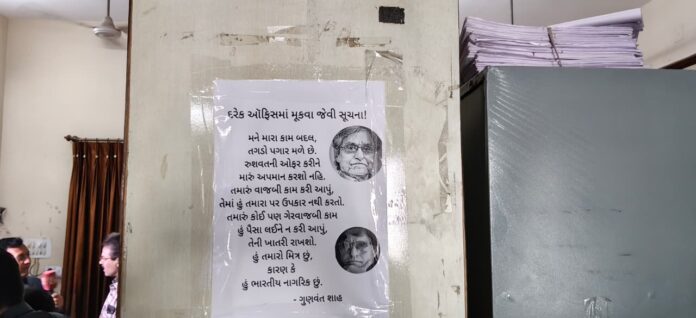 દરેક ઑફિસમાં મૂકવા જેવી સૂચના!
મને મારા કામ બદલ,
તગડો પગાર મળે છે.
રુશવતની ઓફર કરીને
મારું અપમાન કરશો નહિ.
તમારું વાજબી કામ કરી આપું,
તેમાં હું તમારા પર ઉપકાર નથી કરતો.
તમારું કોઈ પણ ગેરવાજબી કામ
હું પૈસા લઈને ન કરી આપું,
તેની ખાતરી રાખશો.
હું તમારો મિત્ર છું,
કારણ કે
હું ભારતીય નાગરિક છું.
- ગુણવંત શાહ